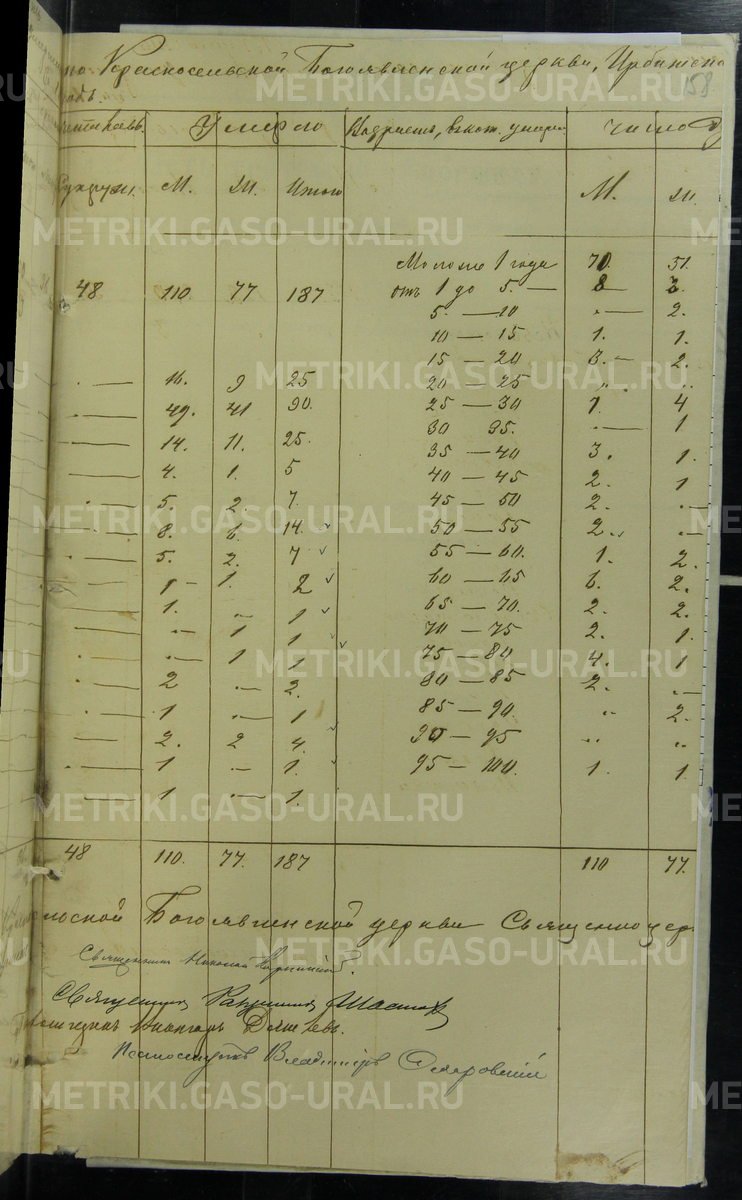 по Красносельской Богоявленской церкви, Ирбитска
158
Умерло Возрастъ, в кот. умер. число у
М. Ж. Итого М. Ж.
Моложе 1 года 71. 51.
48 110 77 187 отъ 1 до 5. — 8 — 3.
5. — 10 — 2.
10 — 15 1. 1.
15 — 20 3. — 2.
16. 9 25 20 — 25
49. 41 90. 25 — 30 1. 4
30 35. — 1
14. 11. 25. 35 — 40 3. 1.
4. 1. 5 40 — 45 2. 1
5. 2. 7. 45 — 50 2. —
8. 6. 14. 50 — 55 2. —
5. 2. 7 55 — 60. 1. 2.
1 — 1. 2 60 — 65 6. 2.
1. — 1 65 — 70. 2. 2.
— 1 1 70 — 75 2. 1.
— 1 1 75 — 80 4. 1
2 — 2. 80 — 85 2. —
1 — 1 85 — 90. 2.
2. 2 4. 90 — 95
1 — 1. 95 — 100. 1. 1.
1 — 1.
48 110. 77. 187 110 77.
Богоявленской церкви Священноцер
Священник Николай
Священник
Владимиръ
METRIKI.GASO-URAL.RU